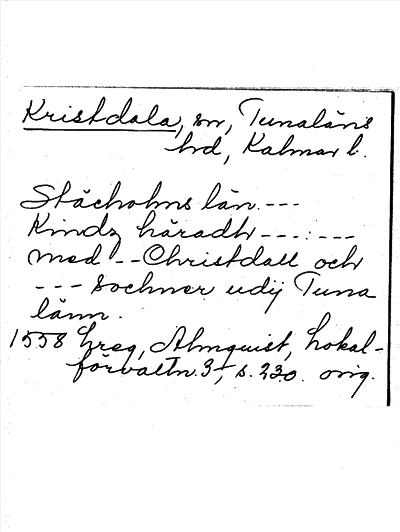 Kristdala, sn, Tunaläns
hd, Kalmar l.
Stächolms län.---
Kindz häradh ---:---
med -- Christdall och
--- sochner udij Tuna
länn.
1558 Ereg, Almquist, Lokal-
förvaltn. 3, s. 230. orig.